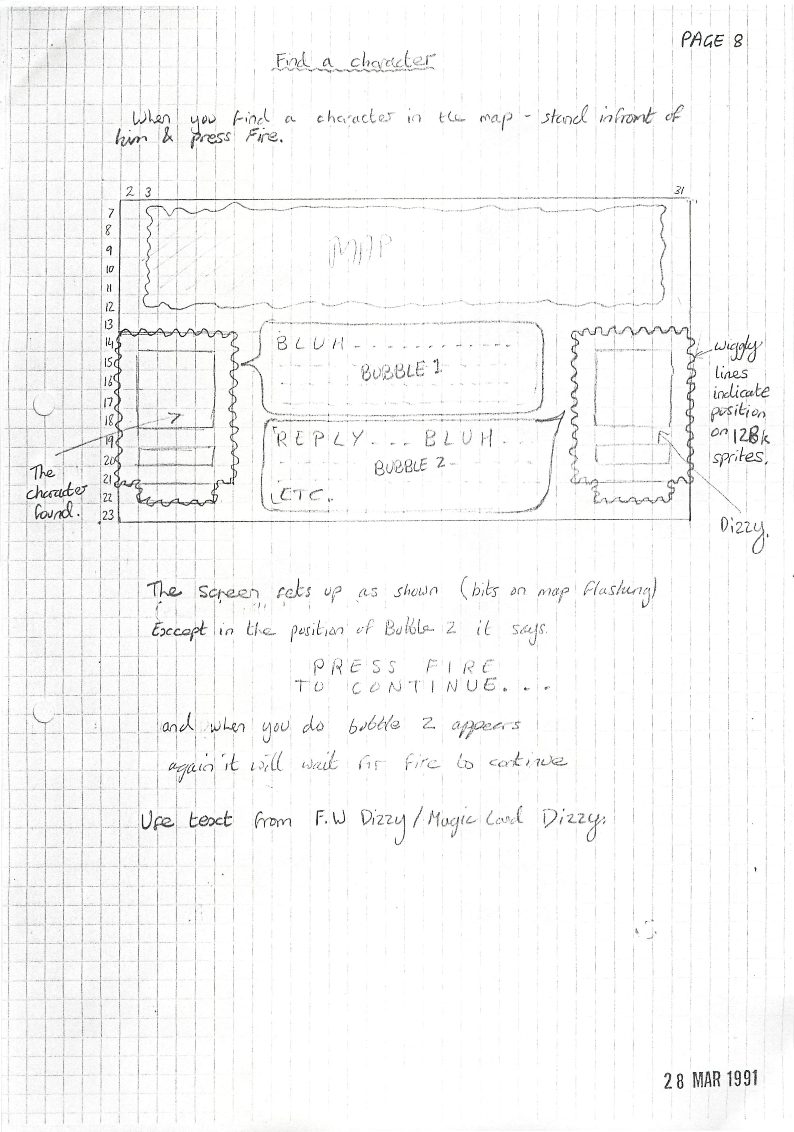 PAGE 8
Find a character
When you find a character in the map - stand infront of
him & press Fire.
2 3 31
7
8
9
10
11
12
13
14
15
16
17
18
19
20
21
22
23
MAP
BLUH..............
BUBBLE 1
REPLY.... BLUH..
BUBBLE 2
ETC.
The
character
found.
wiggly
lines
indicate
position
on 128k
sprites.
Dizzy.
The screen sets up as shown (bits on map flashing)
Except in the position of Bubble 2 it says.
PRESS FIRE
TO CONTINUE...
and when you do bubble 2 appears
again it will wait for fire to continue
Use text from F.W Dizzy / Magic Land Dizzy.
28 MAR 1991